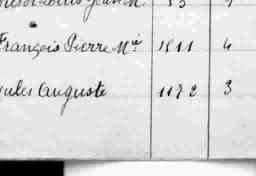 François Pierre Mie 1811 4
Jules Auguste 1172 3